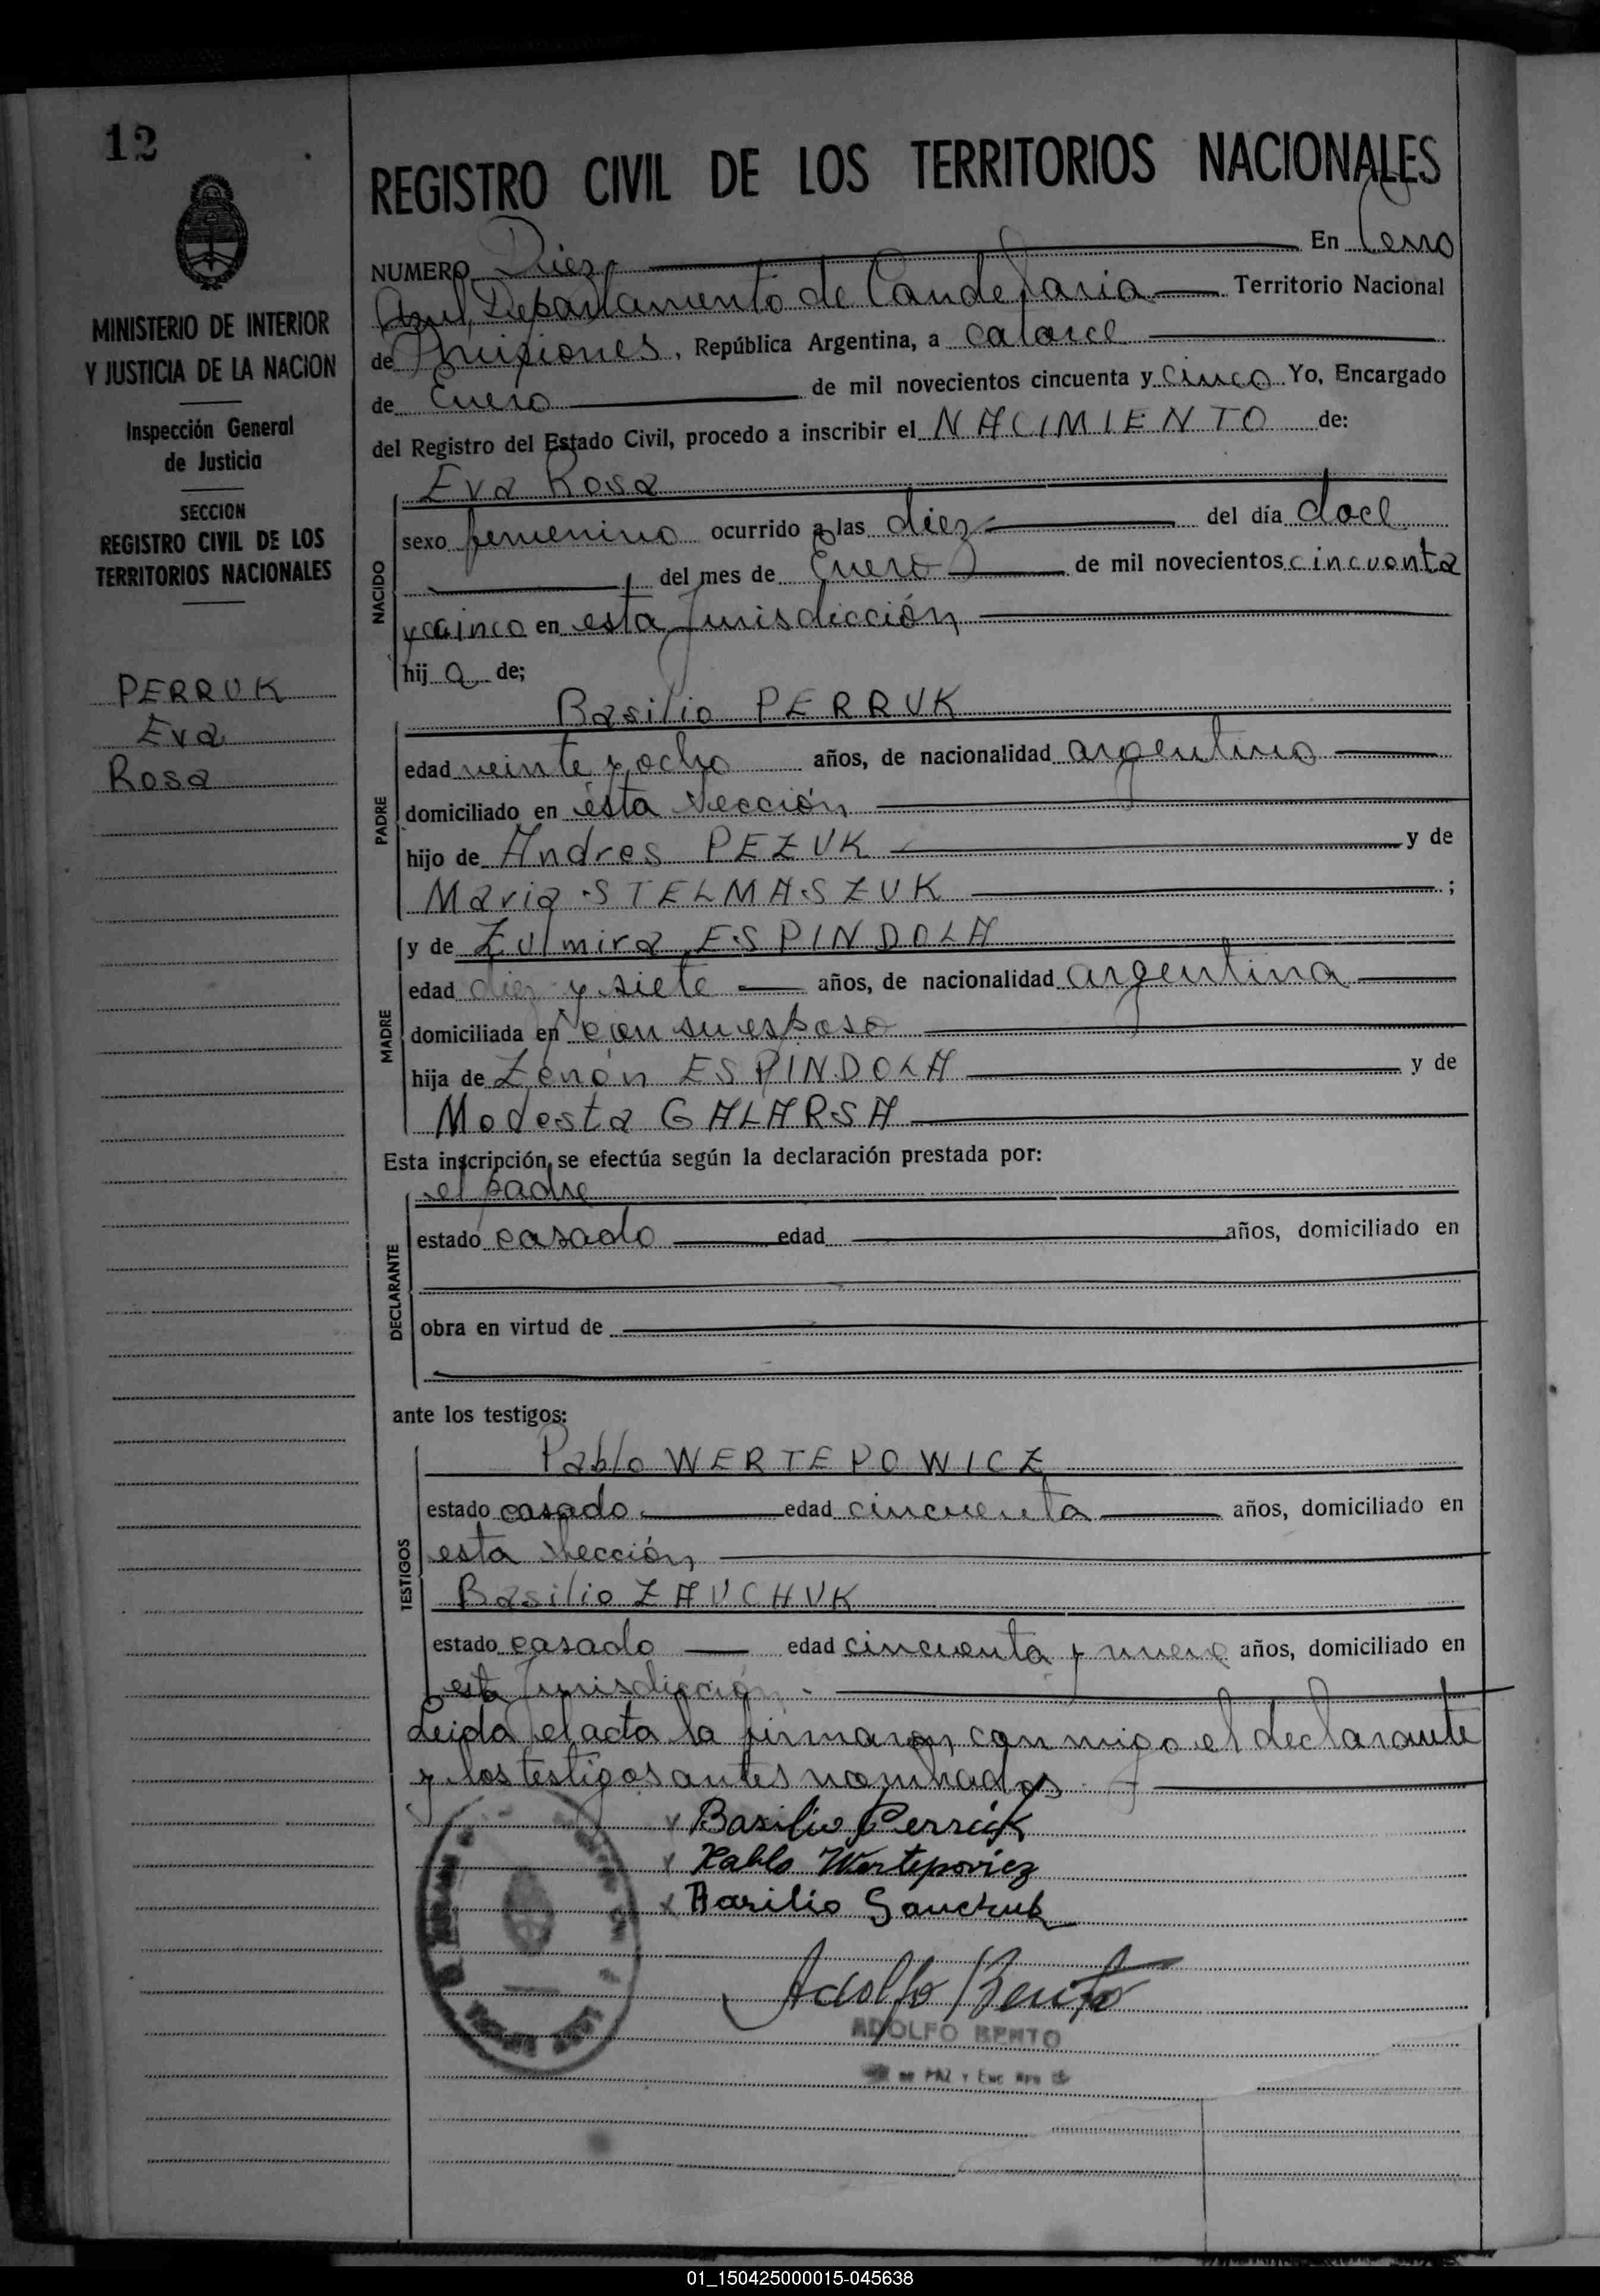 12
MINISTERIO DE INTERIOR
Y JUSTICIA DE LA NACION
Inspección General
de Justicia
SECCION
REGISTRO CIVIL DE LOS
TERRITORIOS NACIONALES
PERRUK
Eva
Rosa
REGISTRO CIVIL DE LOS TERRITORIOS NACIONALES
NUMERO Diez En Cerro
Azul, Departamento de Candelaria Territorio Nacional
de Misiones, República Argentina, a catorce
de Enero de mil novecientos cincuenta y cinco Yo, Encargado
del Registro del Estado Civil, procedo a inscribir el NACIMIENTO de:
NACIDO
Eva Rosa
sexo femenino ocurrido a las diez del día doce
del mes de Enero de mil novecientos cincuenta
y cinco en esta Jurisdicción
hij a de;
PADRE
Basilio PERRUK
edad veinte y ocho años, de nacionalidad argentino
domiciliado en ésta Sección
hijo de Andres PEZUK y de
Maria STELMASZUK ;
MADRE
y de Zulmira ESPINDOLA
edad diez y siete años, de nacionalidad argentina
domiciliada en con su esposo
hija de Zenón ESPINDOLA y de
Modesta GALARSA
Esta inscripción se efectúa según la declaración prestada por:
DECLARANTE
el padre
estado casado edad años, domiciliado en
obra en virtud de
ante los testigos:
TESTIGOS
Pablo WERTEPOWICZ
estado casado edad cincuenta años, domiciliado en
esta Sección
Basilio ZAUCHUK
estado casado edad cincuenta y nueve años, domiciliado en
esta Jurisdicción
Leida el acta la firmaron conmigo el declarante
y los testigos antes nombrados
x Basilio Perruk
x Pablo Wertepovicz
x Basilio Sauczuk
Adolfo Bento
ADOLFO BENTO
DE PAZ Y Enc
01_150425000015-045638